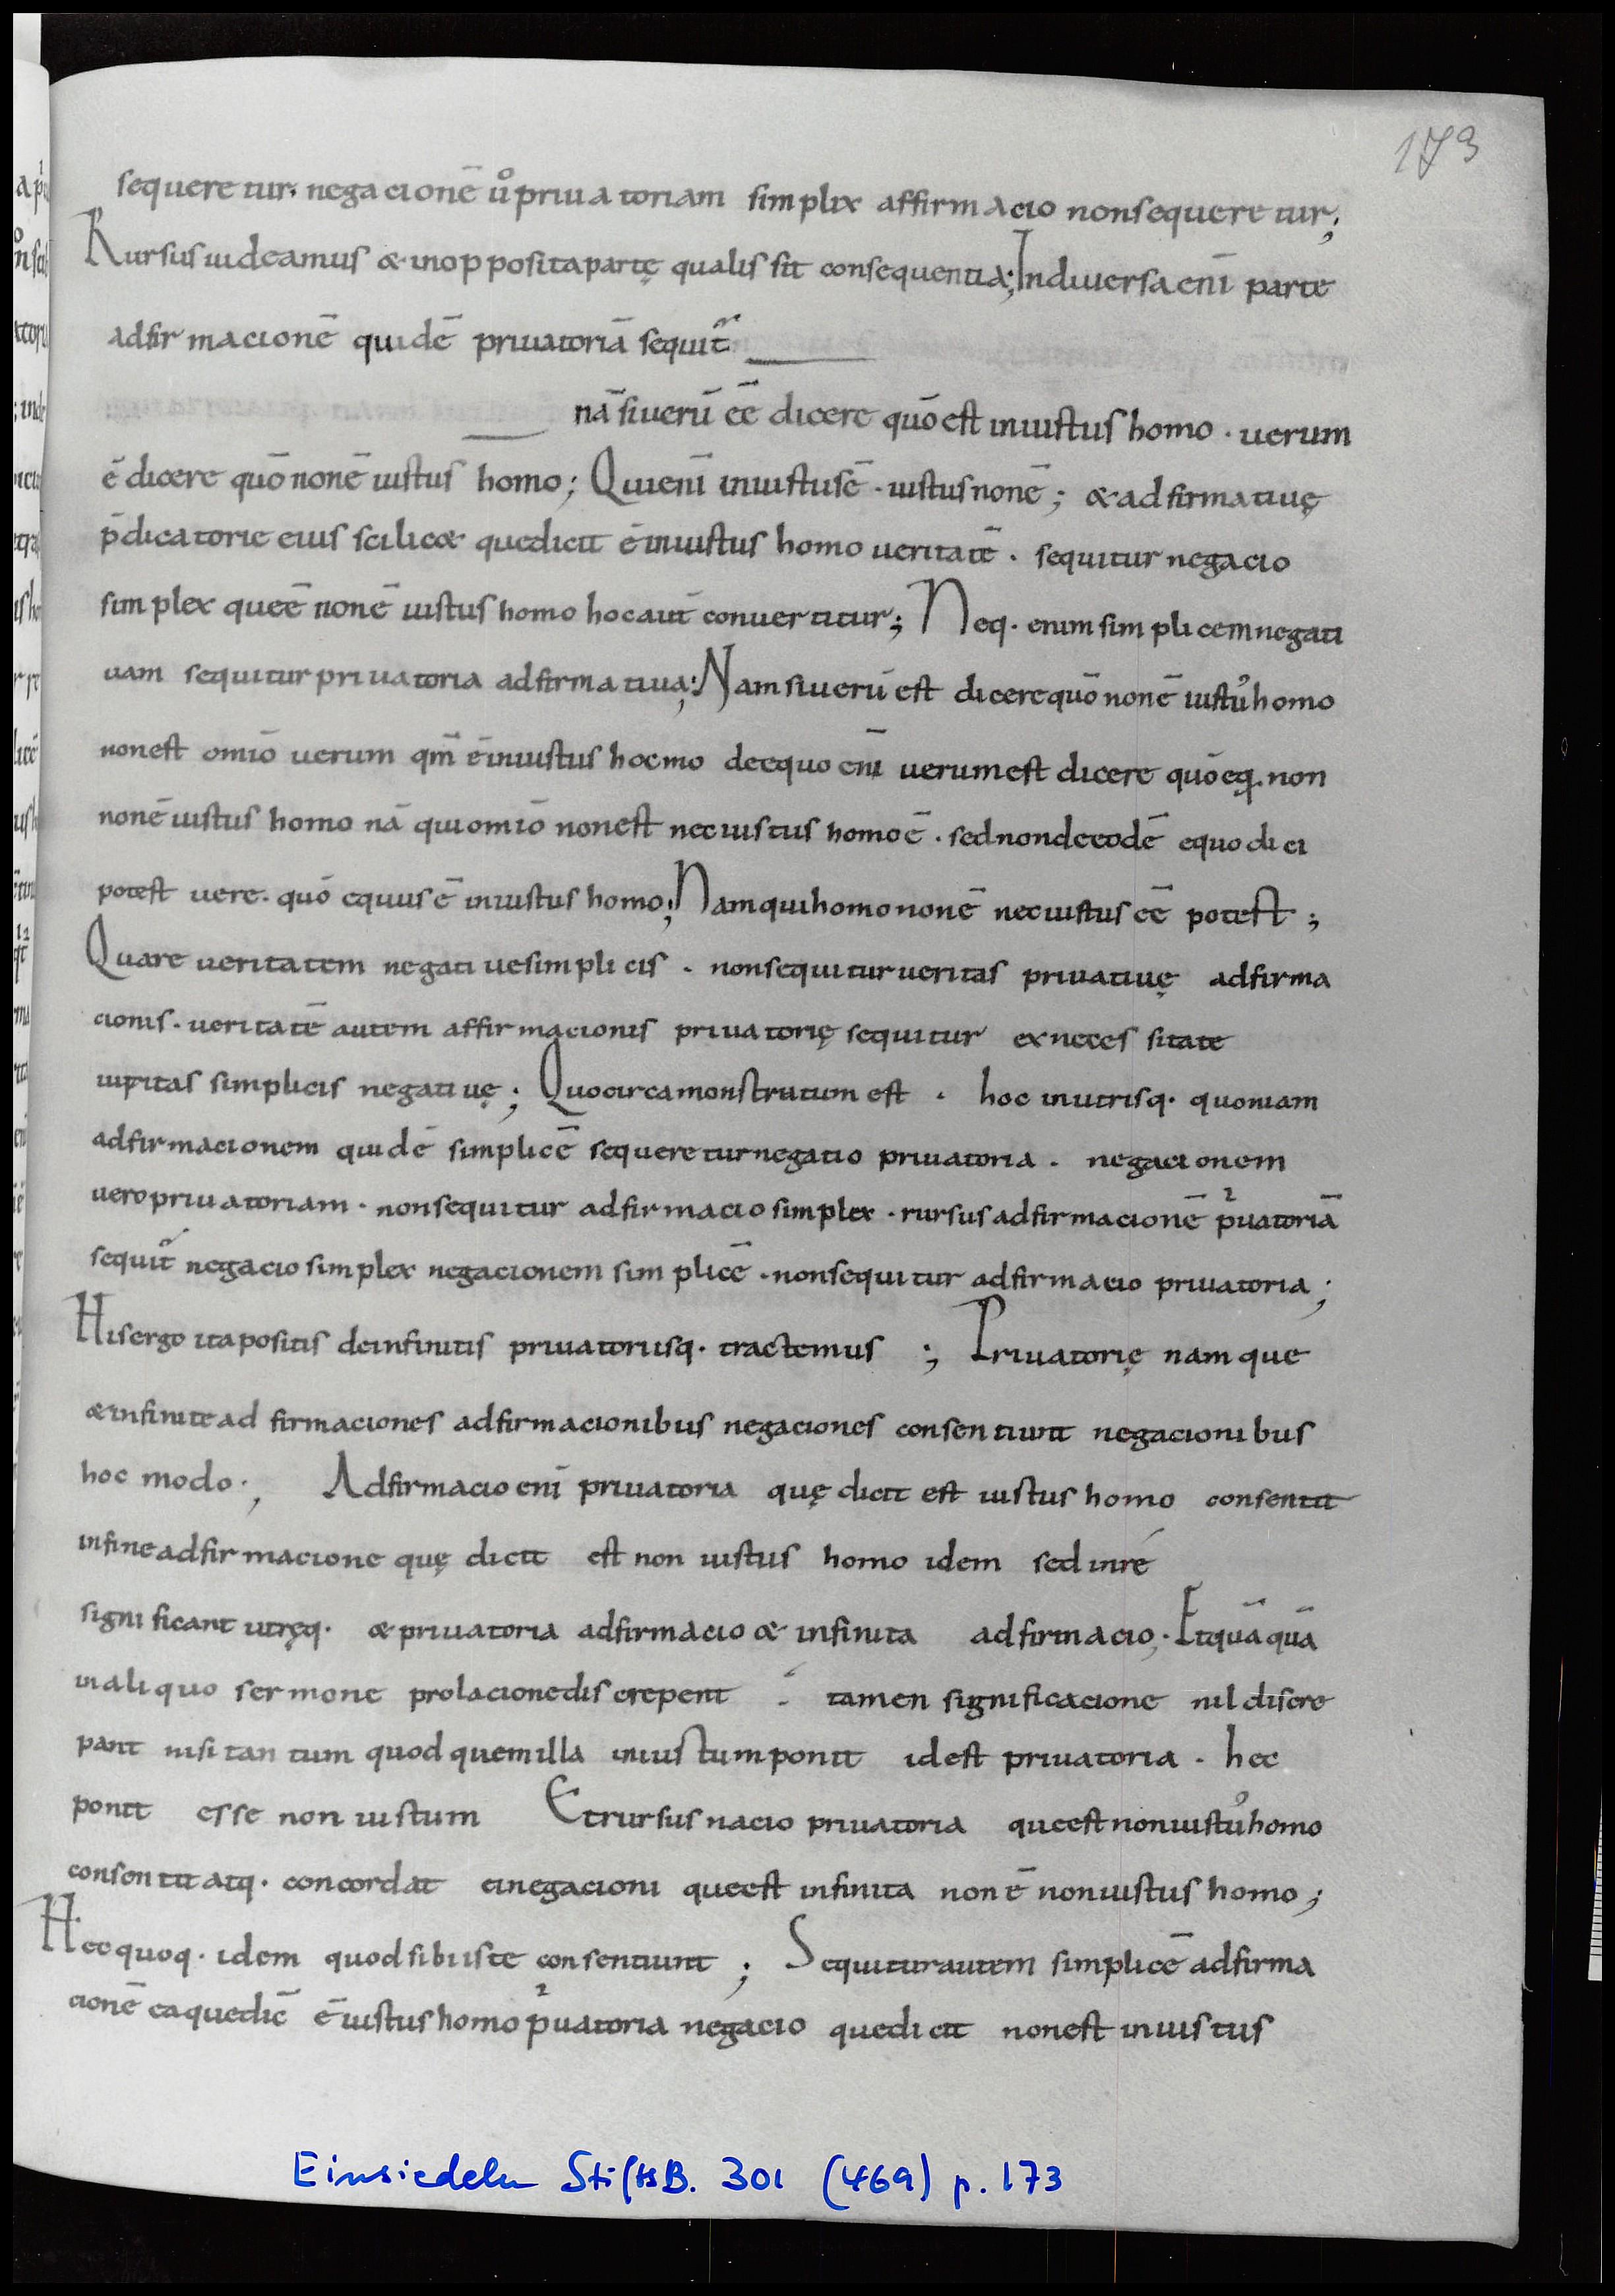 173
sequeretur. negacionē ůpriuatoriam simplex affirmacio nonsequeretur;
Rursus uideamus & inopposita partę qualis sit consequentia; Indiuersa enī parte
adfirmacionē quidē priuatoriā sequit̄
nā siuerū eē dicere quō est iniustus homo . uerum
ē dicere quō nonē iustus homo; Quienī iniustusē . iustus nonē; & adfirmatiuę
p̄dicatorie eius scilic& quedicit ē iniustus homo ueritatē . sequitur negacio
simplex queē nonē iustus homo hocaut̄ conuertitur; Neq. enim simplicem negati
uam sequitur priuatoria adfirmatiua; Nam siuerū est dicere quō nonē iustu᾽ homo
nonest omīo uerum qm̄ ē iniustus hocmo deequo enī uerum est dicere quō eq̨. non
nonē iustus homo nā quiomīo nonest neciustus homo ē . sed nondeeodē equo dici
potest uere . quō equus ē iniustus homo; Nam quihomo nonē neciustus eē potest;
Quare ueritatem negatiue simplicis . nonsequitur ueritas priuatiuę adfirma
cionis . ueritatē autem affirmacionis priuatorię sequitur exnecessitate
uęritas simplicis negatiuę; Quocirca monstratum est . hoc inutrisq. quoniam
adfirmacionem quidē simplicē sequeretur negatio priuatoria . negacionem
uero priuatoriam . nonsequitur adfirmacio simplex . rursus adfirmacionē puatoriā
sequit̄ negacio simplex negacionem simplicē . nonsequitur adfirmacio priuatoria;
Hisergo itapositis deinfinitis priuatoriisq. tractemus ; Priuatorię namque
& infinite adfirmaciones adfirmacionibus negaciones consentiunt negacionibus
hoc modo; Adfirmacio enī priuatoria quę dicit est iustus homo consentit
infine adfirmacione quę dicit est non iustus homo idem sed inré
significant utręq. & priuatoria adfirmacio & infinita adfirmacio; Etquā quā
inaliquo sermone prolacione discrepent . tamen significacione nil discre
pant nisi tantum quod quemilla iniustum ponit idest priuatoria . hec
ponit esse non iustum Etrursus nacio priuatoria queest noniustu᾽ homo
consentit atq. concordat einegacioni queest infinita non ē noniustus homo;
Hec quoq. idem quod sibi iste consentiunt ; Sequitur autem simplicē adfirma
cionē eaquedic̄ ē iustus homo puatoria negacio quedicit nonest iniustus
Einsiedeln StiftsB. 301 (469) p. 173